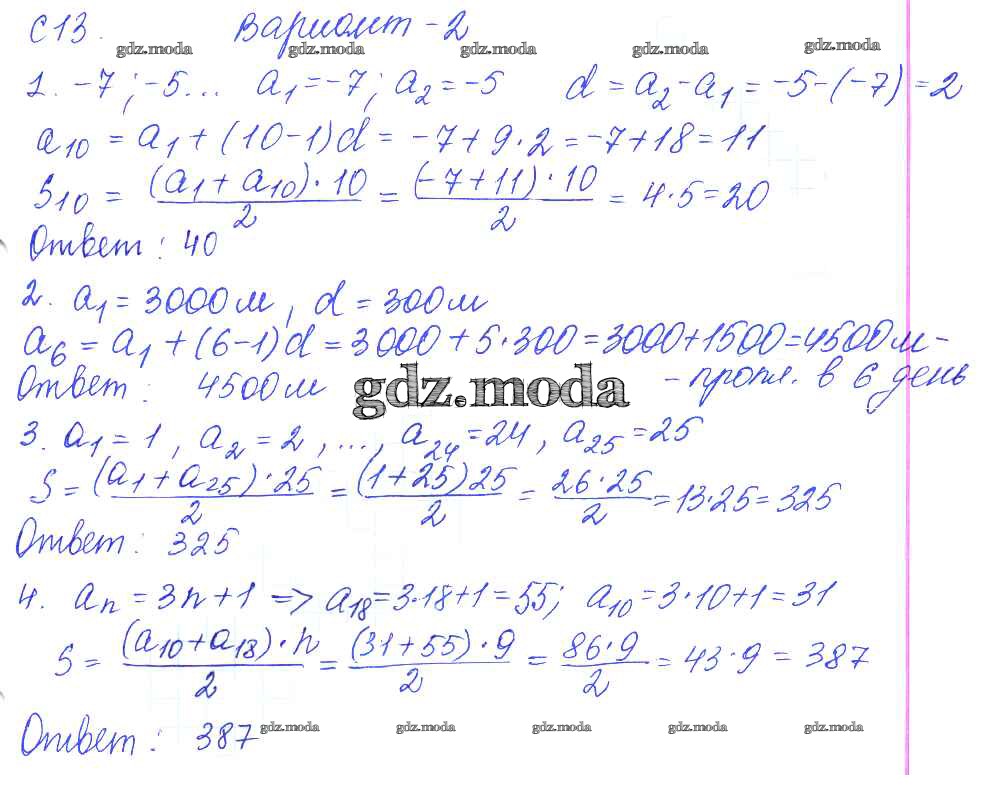 С13. Вариант-2
gdz.moda gdz.moda gdz.moda gdz.moda gdz.moda
1. -7; -5... a1 = -7; a2 = -5 d = a2 - a1 = -5-(-7) = 2
a10 = a1 + (10-1)d = -7 + 9·2 = -7+18 = 11
S10 = (a1 + a10)·10/2 = (-7+11)·10/2 = 4·5 = 20
Ответ: 40
2. a1 = 3000м, d = 300м
a6 = a1 + (6-1)d = 3000 + 5·300 = 3000+1500 = 4500м-
Ответ: 4500м gdz.moda - пропл. в 6 день
3. a1 = 1, a2 = 2, ..., a24 = 24, a25 = 25
S = (a1 + a25)·25/2 = (1+25)25/2 = 26·25/2 = 13·25 = 325
Ответ: 325
4. an = 3n+1 => a18 = 3·18+1 = 55; a10 = 3·10+1 = 31
S = (a10 + a18)·n/2 = (31+55)·9/2 = 86·9/2 = 43·9 = 387
Ответ: 387 gdz.moda gdz.moda gdz.moda gdz.moda gdz.moda